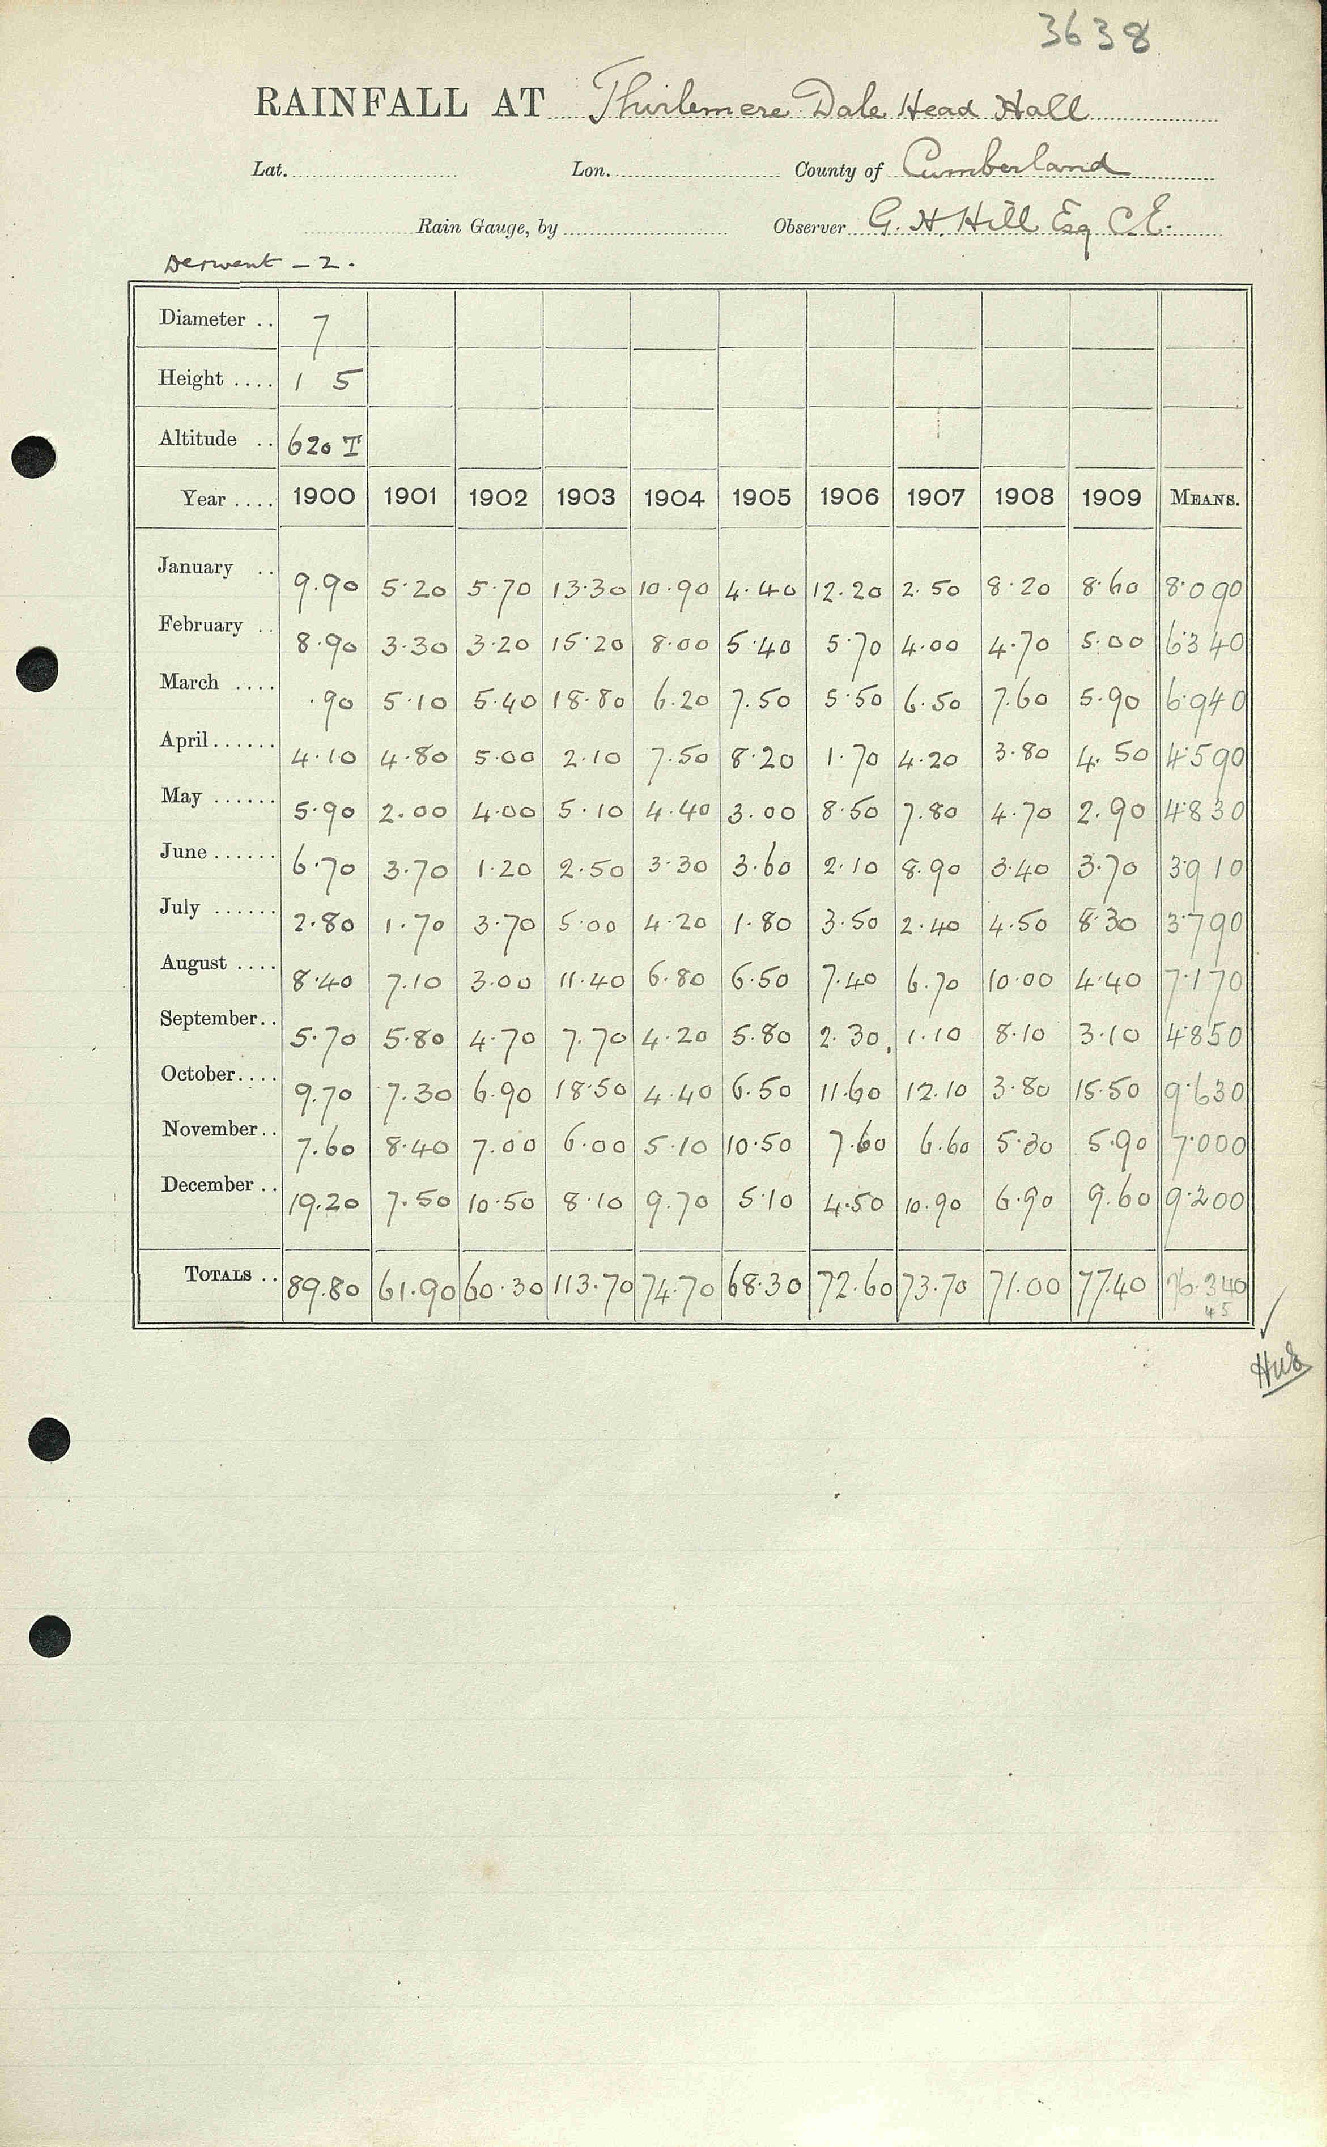 3638
RAINFALL AT Thirlemere Dale Head Hall
Lat. Lon. County of Cumberland
Rain Gauge, by Observer G. H. Hill Esq C.E.
Derwent - 2.
Diameter .. 7
Height .... 1 5
Altitude .. 620 T
Year .... 1900 1901 1902 1903 1904 1905 1906 1907 1908 1909 MEANS.
January .. 9.90 5.20 5.70 13.30 10.90 4.40 12.20 2.50 8.20 8.60 8.090
February .. 8.90 3.30 3.20 15.20 8.00 5.40 5.70 4.00 4.70 5.00 6.340
March .... .90 5.10 5.40 18.80 6.20 7.50 5.50 6.50 7.60 5.90 6.940
April...... 4.10 4.80 5.00 2.10 7.50 8.20 1.70 4.20 3.80 4.50 4.590
May ...... 5.90 2.00 4.00 5.10 4.40 3.00 8.50 7.80 4.70 2.90 4.830
June...... 6.70 3.70 1.20 2.50 3.30 3.60 2.10 8.90 3.40 3.70 3.910
July ...... 2.80 1.70 3.70 5.00 4.20 1.80 3.50 2.40 4.50 8.30 3.790
August .... 8.40 7.10 3.00 11.40 6.80 6.50 7.40 6.70 10.00 4.40 7.170
September.. 5.70 5.80 4.70 7.70 4.20 5.80 2.30 1.10 8.10 3.10 4.850
October.... 9.70 7.30 6.90 18.50 4.40 6.50 11.60 12.10 3.80 15.50 9.630
November.. 7.60 8.40 7.00 6.00 5.10 10.50 7.60 6.60 5.30 5.90 7.000
December .. 19.20 7.50 10.50 8.10 9.70 5.10 4.50 10.90 6.90 9.60 9.200
TOTALS .. 89.80 61.90 60.30 113.70 74.70 68.30 72.60 73.70 71.00 77.40 76.340
45